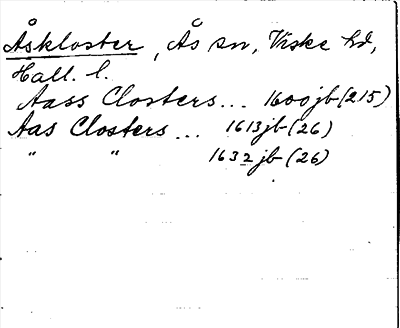 Åskloster, Ås sn, Viske hd,
Hall. l.
Aass Closters... 1600 jb (215)
Aas Closters... 1613 jb (26)
" " 1632 jb (26)